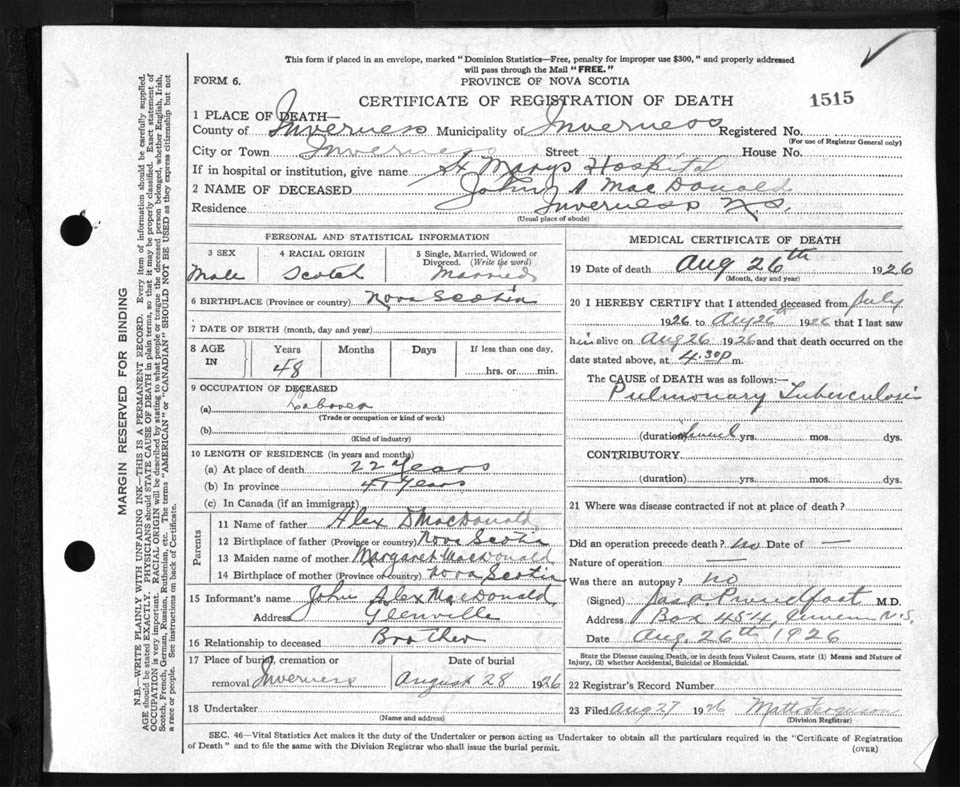 This form if placed in an envelope, marked "Dominion Statistics—Free, penalty for improper use $300," and properly addressed
will pass through the Mail "FREE."
FORM 6.
PROVINCE OF NOVA SCOTIA
CERTIFICATE OF REGISTRATION OF DEATH
1515
1 PLACE OF DEATH—
County of Inverness Municipality of Inverness Registered No.
(For use of Registrar General only)
City or Town Inverness Street House No.
If in hospital or institution, give name St Marys Hospital
2 NAME OF DECEASED John A MacDonald
Residence Inverness N.S.
(Usual place of abode)
PERSONAL AND STATISTICAL INFORMATION
3 SEX
Male
4 RACIAL ORIGIN
Scotch
5 Single, Married, Widowed or
Divorced. (Write the word)
Married
6 BIRTHPLACE (Province or country) Nova Scotia
7 DATE OF BIRTH (month, day and year)
8 AGE
IN
Years
48
Months
Days
If less than one day,
hrs. or min.
9 OCCUPATION OF DECEASED
(a) Laborer
(Trade or occupation or kind of work)
(b)
(Kind of industry)
10 LENGTH OF RESIDENCE (in years and months)
(a) At place of death 22 Years
(b) In province Years
(c) In Canada (if an immigrant)
Parents
11 Name of father Alex D MacDonald
12 Birthplace of father (Province or country) Nova Scotia
13 Maiden name of mother Margaret MacDonald
14 Birthplace of mother (Province or country) Nova Scotia
15 Informant's name John Alex MacDonald
Address Glenville
16 Relationship to deceased Brother
17 Place of burial, cremation or
removal Inverness
Date of burial
August 28 1926
18 Undertaker
(Name and address)
MEDICAL CERTIFICATE OF DEATH
19 Date of death Aug 26th 1926
(Month, day and year)
20 I HEREBY CERTIFY that I attended deceased from July
1926 to Aug 26th 1926 that I last saw
him alive on Aug 26 1926 and that death occurred on the
date stated above, at 4.30p m.
The CAUSE of DEATH was as follows:
Pulmonary Tuberculosis
(duration) yrs. mos. dys.
CONTRIBUTORY
(duration) yrs. mos. dys.
21 Where was disease contracted if not at place of death?
Did an operation precede death? no Date of —
Nature of operation —
Was there an autopsy? no
(Signed) Jas. A. Proudfoot M.D.
Address Box 454, N.S.
Date Aug. 26th 1926
State the Disease causing Death, or in death from Violent Causes, state (1) Means and Nature of
Injury, (2) whether Accidental, Suicidal or Homicidal.
22 Registrar's Record Number
23 Filed Aug 27 1926 Matt Ferguson
(Division Registrar)
SEC. 46—Vital Statistics Act makes it the duty of the Undertaker or person acting as Undertaker to obtain all the particulars required in the "Certificate of Registration
of Death" and to file the same with the Division Registrar who shall issue the burial permit.
(OVER)
MARGIN RESERVED FOR BINDING
N.B.—WRITE PLAINLY WITH UNFADING INK—THIS IS A PERMANENT RECORD. Every item of information should be carefully supplied.
AGE should be stated EXACTLY. PHYSICIANS should STATE CAUSE OF DEATH in plain terms, so that it may be properly classified. Exact statement of
OCCUPATION is very important. RACIAL ORIGIN will be described by stating to what people or tongue the deceased person belonged, whether English, Irish,
Scotch, French, German, Russian, Ruthenian, etc. The terms "AMERICAN" or "CANADIAN" SHOULD NOT BE USED as they express citizenship but not
a race or people. See instructions on back of Certificate.